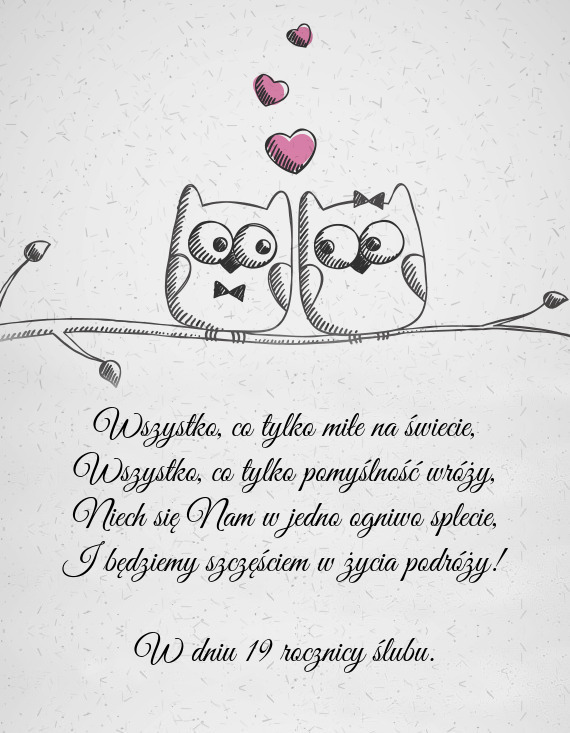 Wszystko, co tylko miłe na świecie,
Wszystko, co tylko pomyślność wróży,
Niech się Nam w jedno ogniwo splecie,
I będziemy szczęściem w życia podróży!
W dniu 19 rocznicy ślubu.